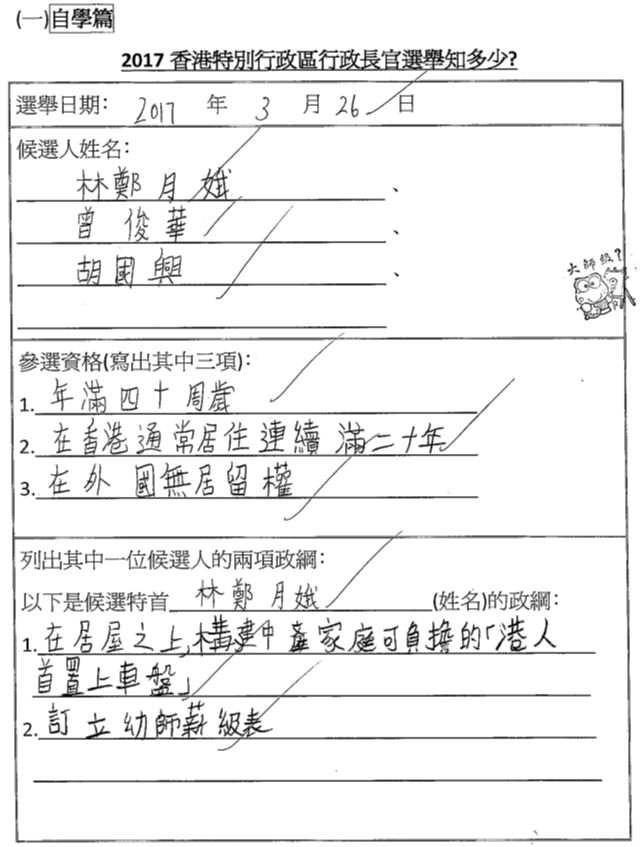 (一)自學篇
2017 香港特別行政區行政長官選舉知多少?
選舉日期: 2017 年 3 月 26 日
候選人姓名:
林鄭月娥、
曾俊華、
胡國興、
大師級?
參選資格(寫出其中三項):
1. 年滿四十周歲
2. 在香港通常居住連續滿二十年
3. 在外國無居留權
列出其中一位候選人的兩項政綱:
以下是候選特首林鄭月娥(姓名)的政綱:
1. 在居屋之上,構建中產家庭可負擔的「港人
首置上車盤」
2. 訂立幼師薪級表